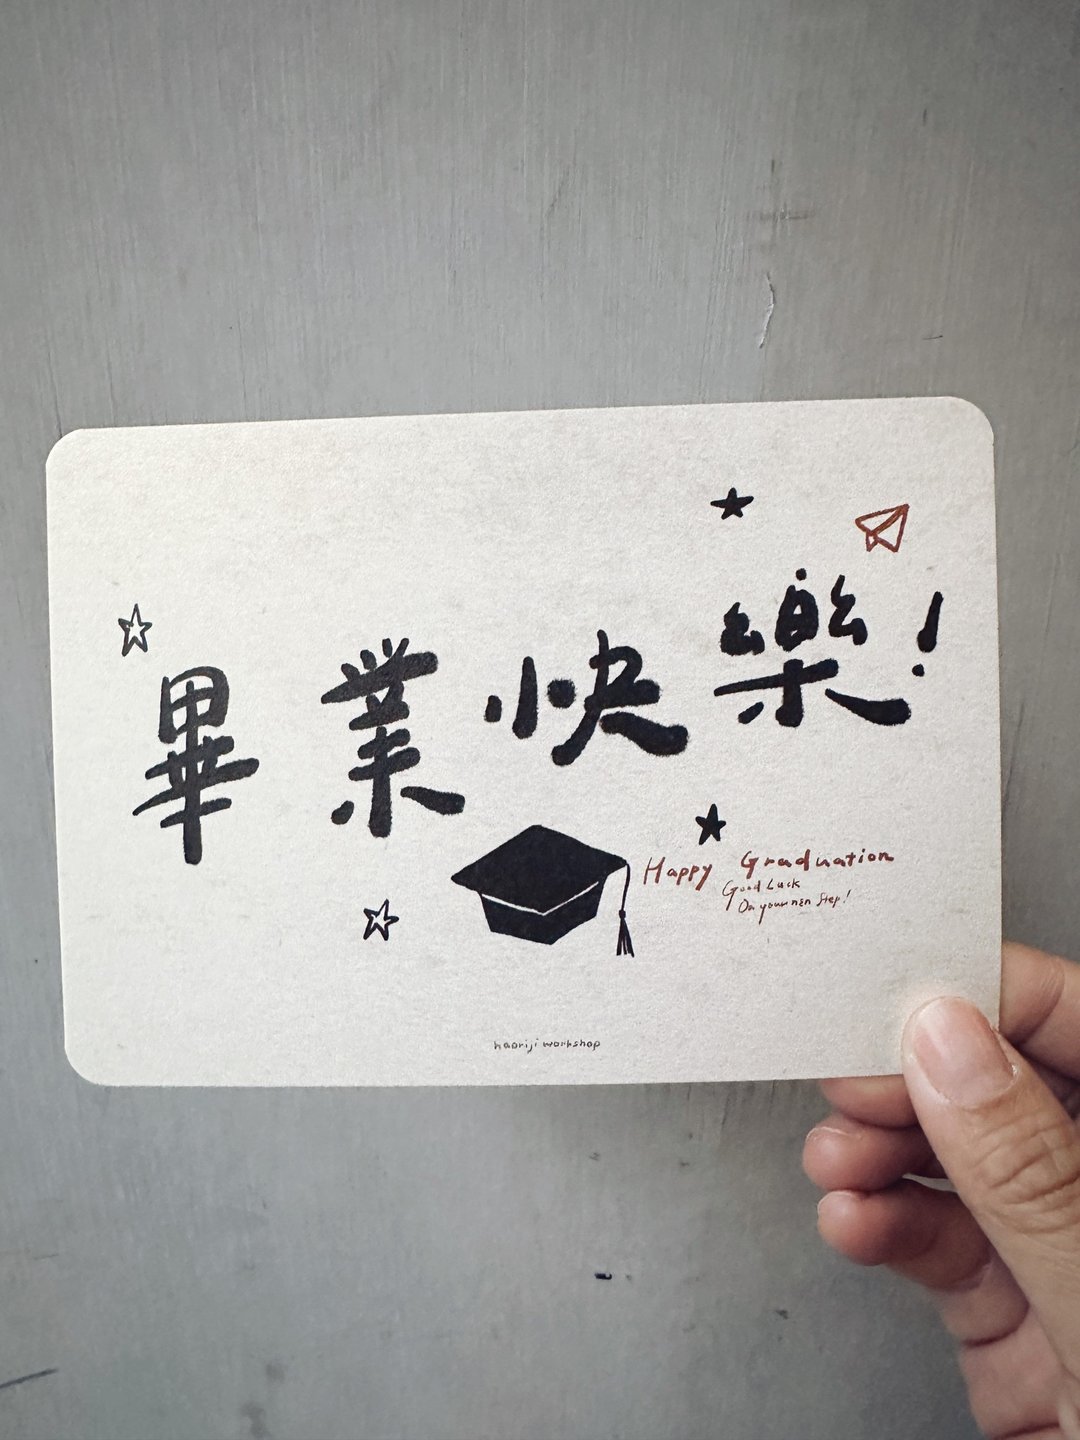 畢業快樂!
Happy Graduation
Good Luck
On your nen Step!
haoriji workshop